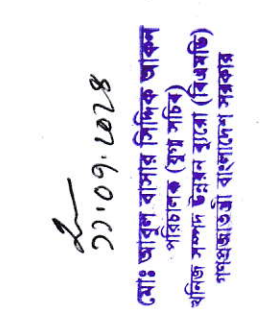 ১১.০৭.২০২৪
মোঃ আবুল বাসার সিদ্দিক আকন
পরিচালক (যুগ্ম সচিব)
খনিজ সম্পদ উন্নয়ন ব্যুরো (বিএমডি)
গণপ্রজাতন্ত্রী বাংলাদেশ সরকার